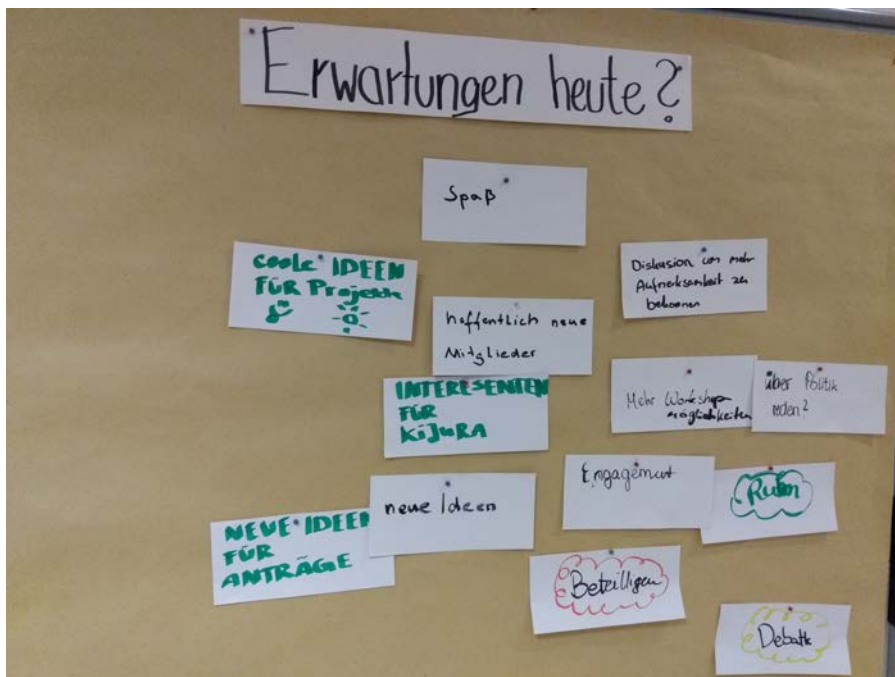 Erwartungen heute?
Spaß
coole IDEEN
FÜR Projekte
Diskusion um mehr
Aufmerksamkeit zu
bekommen
hoffentlich neue
Mitglieder
INTERESENTEN
FÜR
KiJURA
Mehr Workshop
möglichkeiten
über Politik
reden?
Engagement
Ruhm
neue Ideen
NEUE IDEEN
FÜR
ANTRÄGE
Beteilligen
Debatte